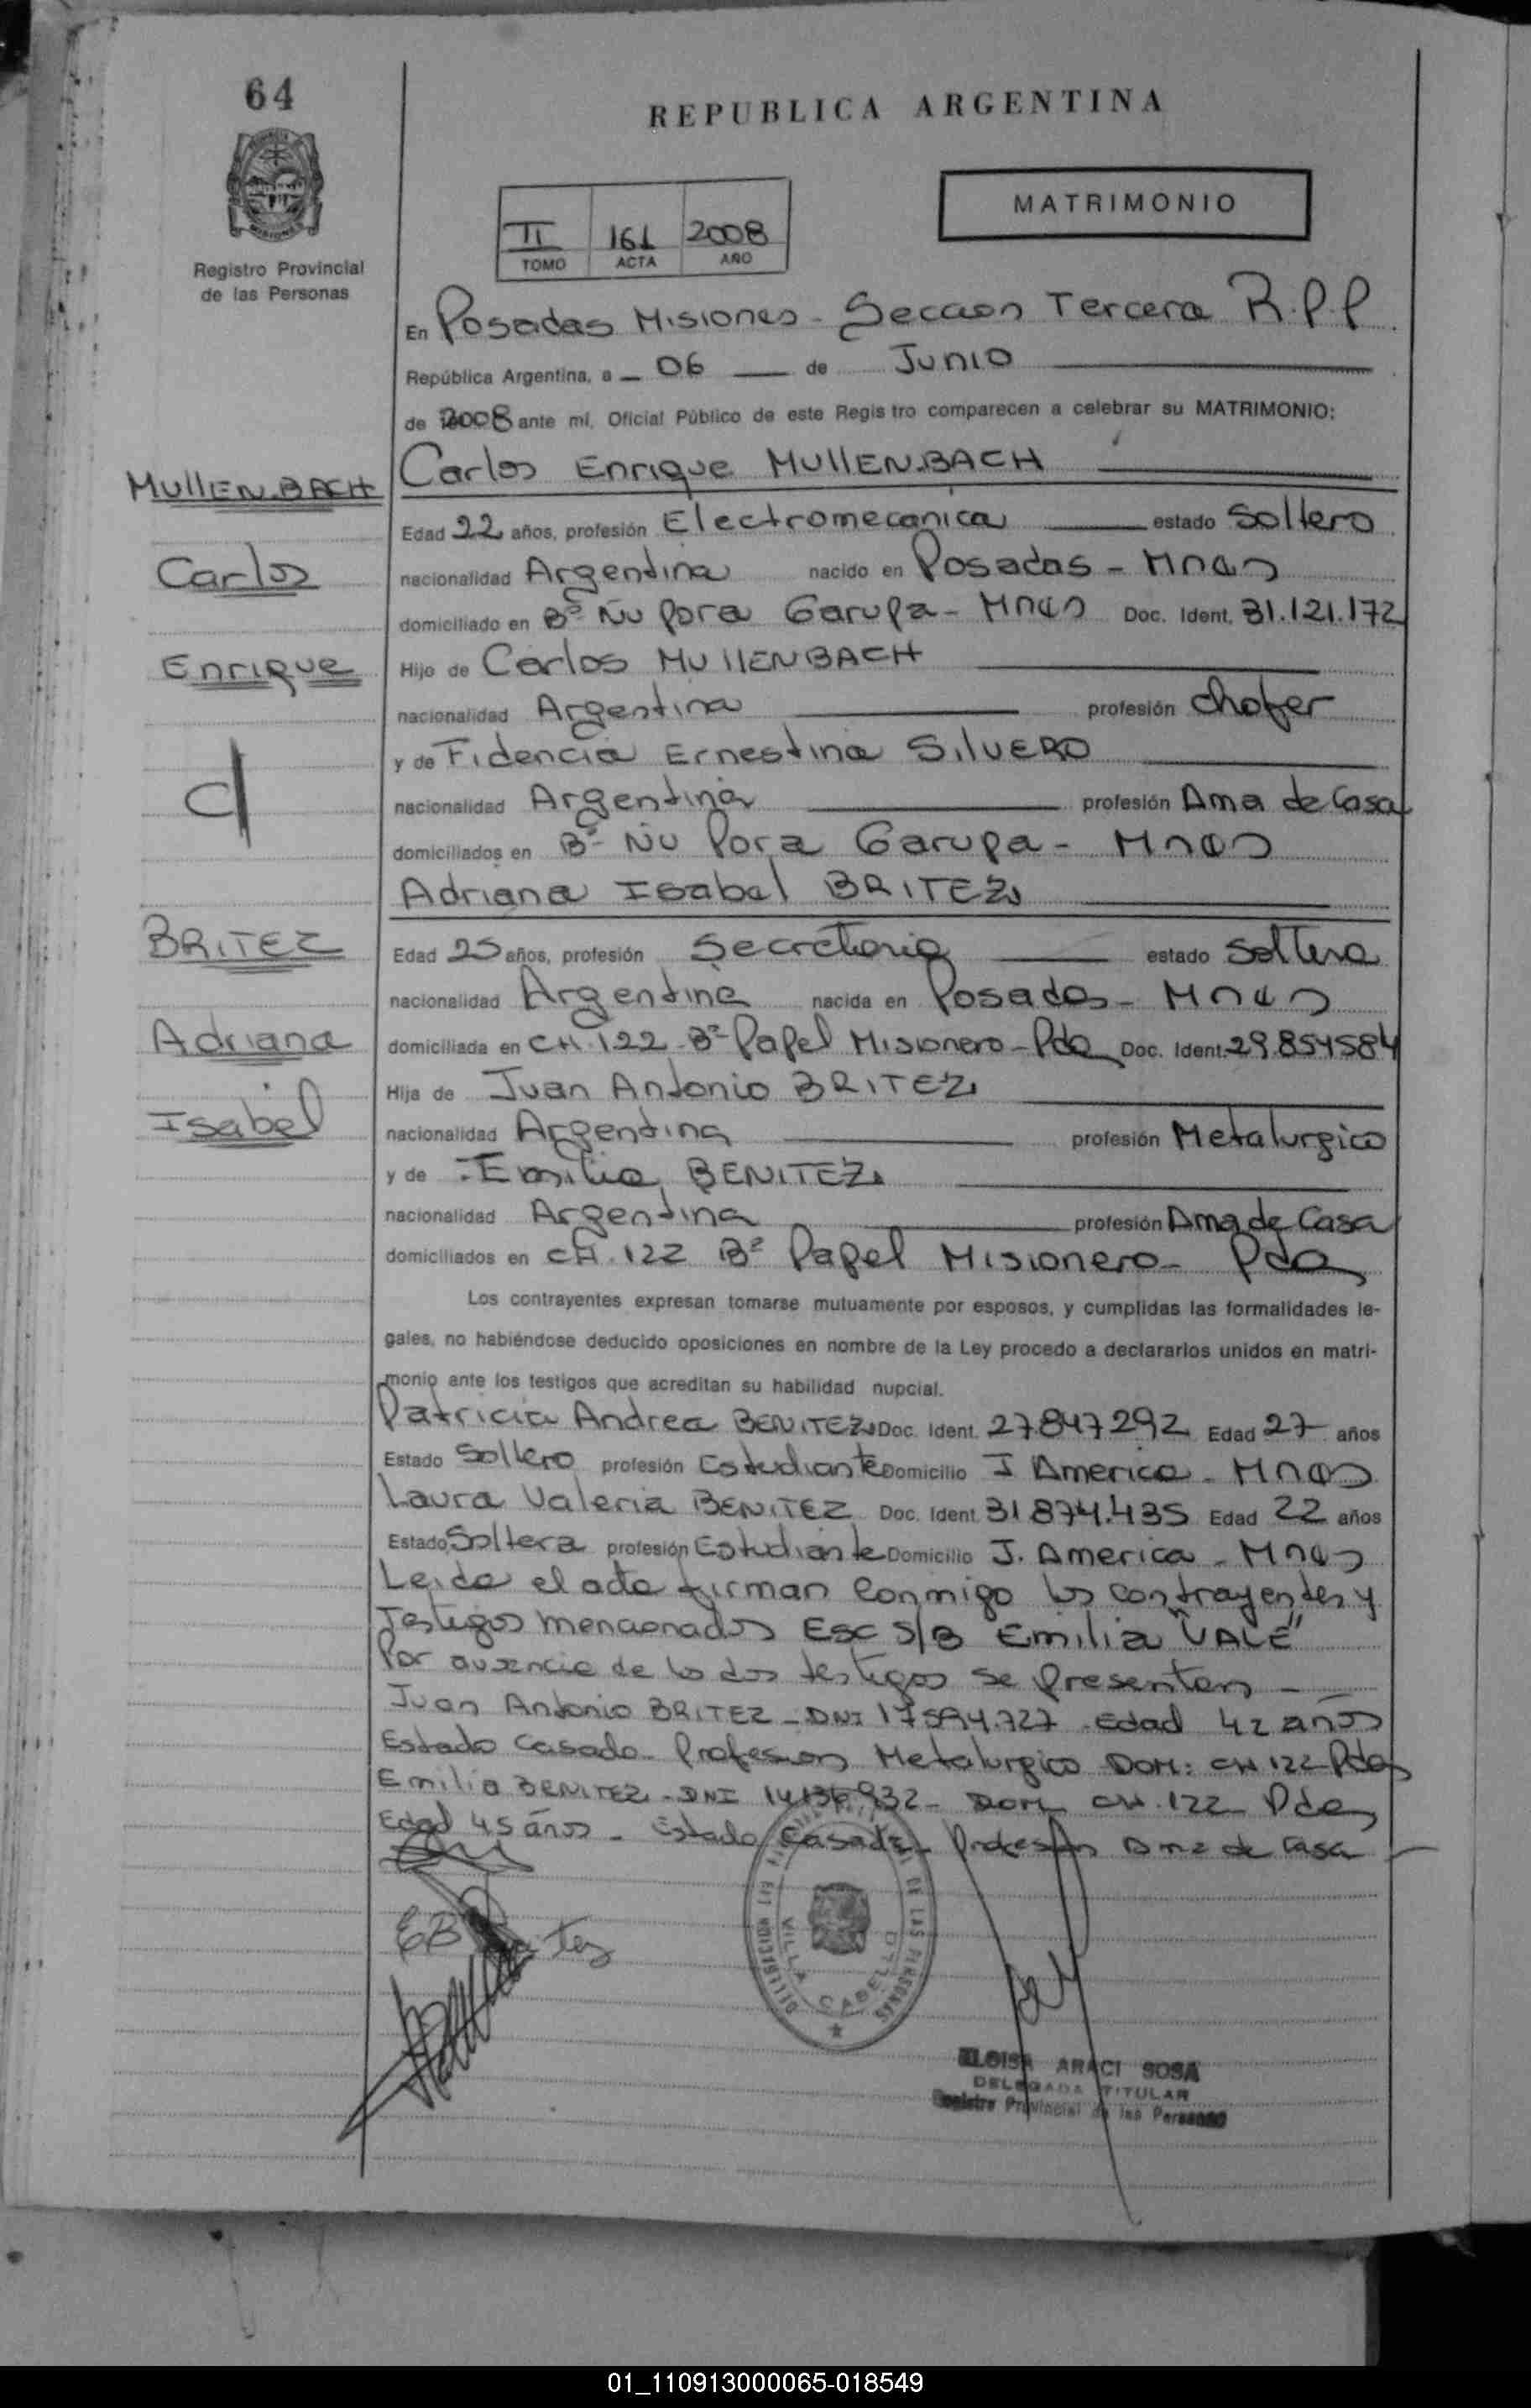 64
REPUBLICA ARGENTINA
MATRIMONIO
II 161 2008
TOMO ACTA AÑO
Registro Provincial
de las Personas
En Posadas Misiones - Seccion Tercera R.P.P
República Argentina, a 06 de Junio
de 2008 ante mí, Oficial Público de este Registro comparecen a celebrar su MATRIMONIO:
Carlos Enrique MUllENBACH
MUllENBACH
Edad 22 años, profesión Electromecanica estado Soltero
Carlos
nacionalidad Argentina nacido en Posadas - Mnes
domiciliado en Bº Ñu Pora Garupa - Mnes Doc. Ident. 31.121.172
Enrique
Hijo de Carlos MUllENBACH
nacionalidad Argentina profesión Chofer
y de Fidencia Ernestina SilvERO
nacionalidad Argentina profesión Ama de Casa
domiciliados en Bº Ñu Pora Garupa - Mnes
Adriana Isabel BRITEZ
BRITEZ
Edad 25 años, profesión Secretaria estado Soltera
nacionalidad Argentina nacida en Posadas - Mnes
Adriana
domiciliada en CH.122 - Bº Papel Misionero - Pdas Doc. Ident. 29.854584
Hija de Juan Antonio BRITEZ
Isabel
nacionalidad Argentina profesión Metalurgico
y de Emilia BENITEZ
nacionalidad Argentina profesión Ama de Casa
domiciliados en CH.122 Bº Papel Misionero - Pdas
Los contrayentes expresan tomarse mutuamente por esposos, y cumplidas las formalidades le-
gales, no habiéndose deducido oposiciones en nombre de la Ley procedo a declararlos unidos en matri-
monio ante los testigos que acreditan su habilidad nupcial.
Patricia Andrea BENITEZ Doc. Ident. 27847292 Edad 27 años
Estado Soltero profesión Estudiante Domicilio J America - Mnes
Laura Valeria BENITEZ Doc. Ident. 31874.435 Edad 22 años
Estado Soltera profesión Estudiante Domicilio J. America - Mnes
Leida el acta firman conmigo los contrayentes y
Testigos mencionados Esc S/B Emilia "VALE"
Por ausencia de los dos testigos se presentan -
Juan Antonio BRITEZ - DNI 17594.727 Edad 42 años
Estado Casado - Profesion Metalurgico DOM: CH 122 Pdas
Emilia BENITEZ - DNI 14136932 - Dom CH.122 Pdas
Edad 45 años - Estado Casada - Profesion Ama de Casa
VILLA CABELLO
DE LAS PERSONAS
ELOISA ARACI SOSA
DELEGADA TITULAR
Registro Provincial de las Personas
01_110913000065-018549